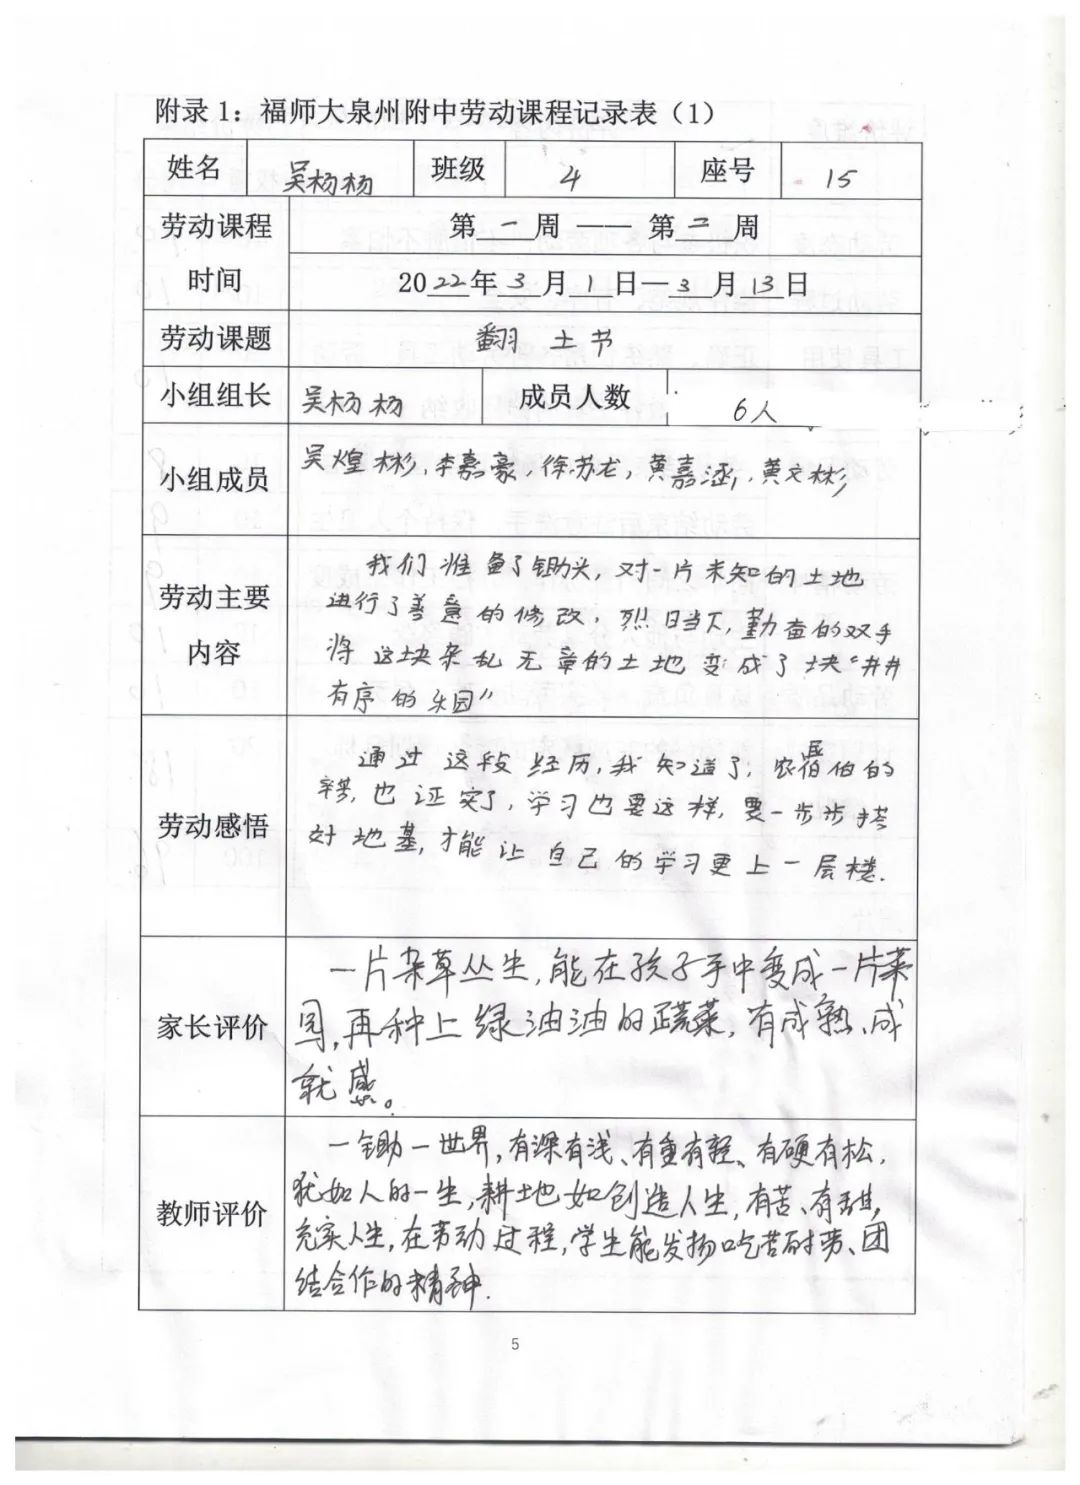 附录1：福师大泉州附中劳动课程记录表（1）
姓名 吴杨杨 班级 4 座号 15
劳动课程时间 第一周 —— 第二周
2022年3月1日—3月13日
劳动课题 翻土节
小组组长 吴杨杨 成员人数 6人
小组成员 吴煌彬,李嘉豪,徐苏龙,黄嘉涵,黄文彬
劳动主要内容
我们准备了锄头,对一片未知的土地
进行了善意的修改,烈日当下,勤奋的双手
将这块杂乱无章的土地变成了块“井井
有序的乐园”
劳动感悟
通过这段经历,我知道了,农民伯伯的
辛劳,也证实了,学习也要这样,要一步步搭
好地基,才能让自己的学习更上一层楼.
家长评价
一片杂草丛生,能在孩子手中变成一片菜
园,再种上绿油油的蔬菜,有成熟、成
就感。
教师评价
一锄一世界,有深有浅、有重有轻、有硬有松,
犹如人的一生,耕地如创造人生,有苦、有甜,
充实人生,在劳动过程,学生能发扬吃苦耐劳、团
结合作的精神.
5